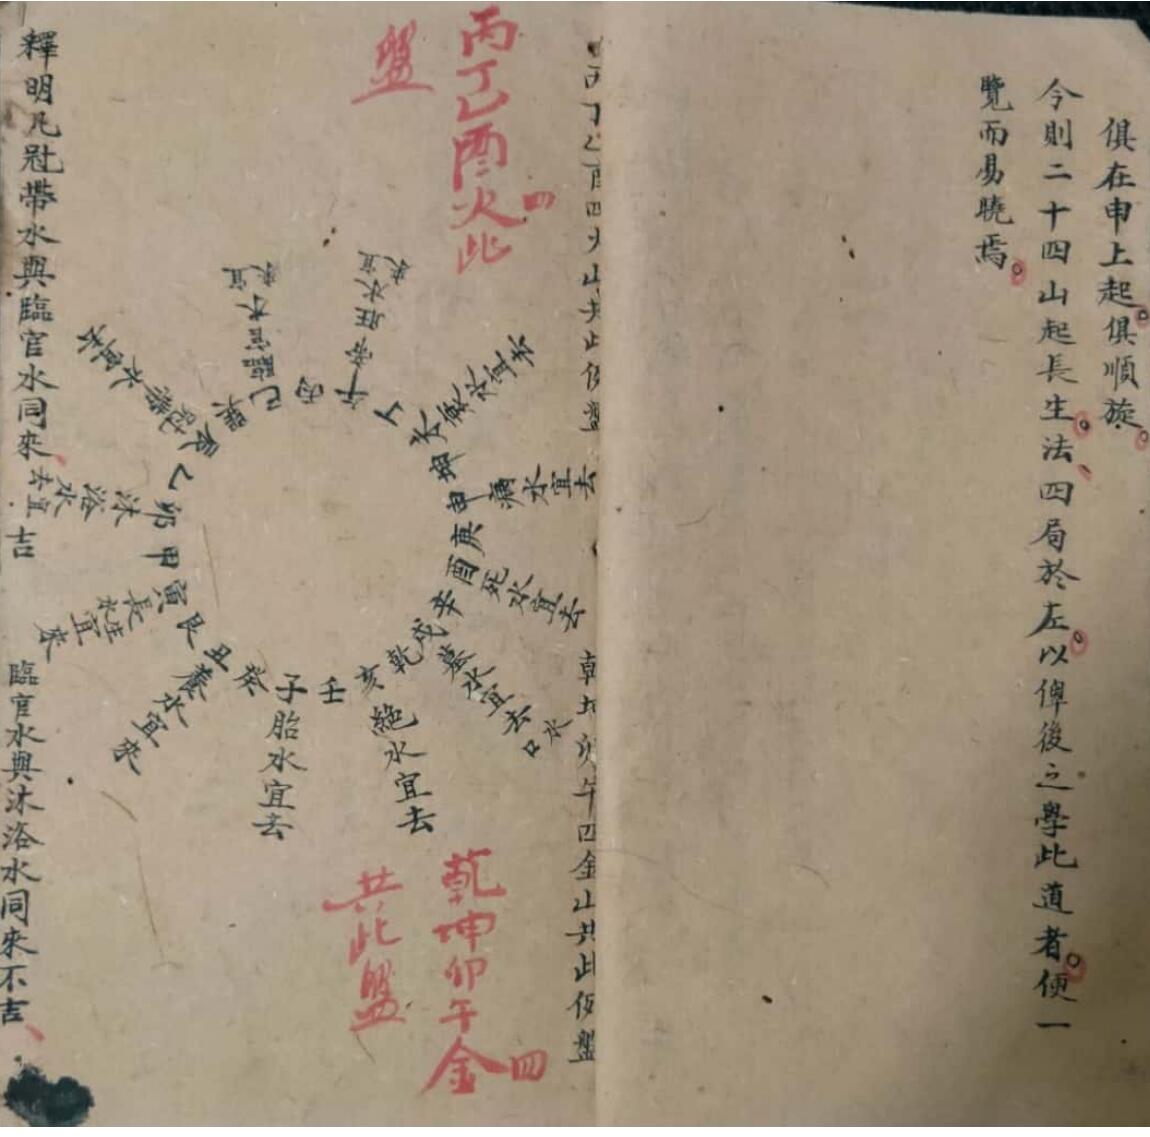 俱在申上起俱順旋
今則二十四山起長生法四局於左以俾後之學此道者便一
覽而易曉焉
丙丁乙酉四火山共此仮盤
乾坤卯午四金山共此仮盤
丙丁乙酉火四此
盤
乾坤卯午金四
共此盤
巳
丙
午
丁
未
坤
申
庚
酉
辛
戌
乾
亥
壬
子
癸
丑
艮
寅
甲
卯
乙
辰
巽
臨官水宜來
帝旺水宜來
衰水宜去
病水宜去
死水宜去
墓水宜去
口水
絕水宜去
胎水宜去
養水宜來
長生水宜來
沐浴水宜去
冠帶水宜去
釋明凡冠帶水與臨官水同來吉
臨官水與沐浴水同來不吉